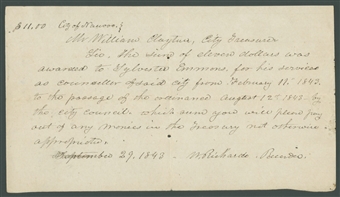 $11.00 City of Nauvoo.
Mr. William Clayton, City Treasurer
Sir. The sum of eleven dollars was
awarded to Sylvester Emmons, for his services
as councillor of said city from February 11th 1843.
to the passage of the ordinance August 12th 1843. by
the city council: which sum you will please pay
out of any monies in the Treasury not otherwise
appropriated.
September 29. 1843. W. Richards